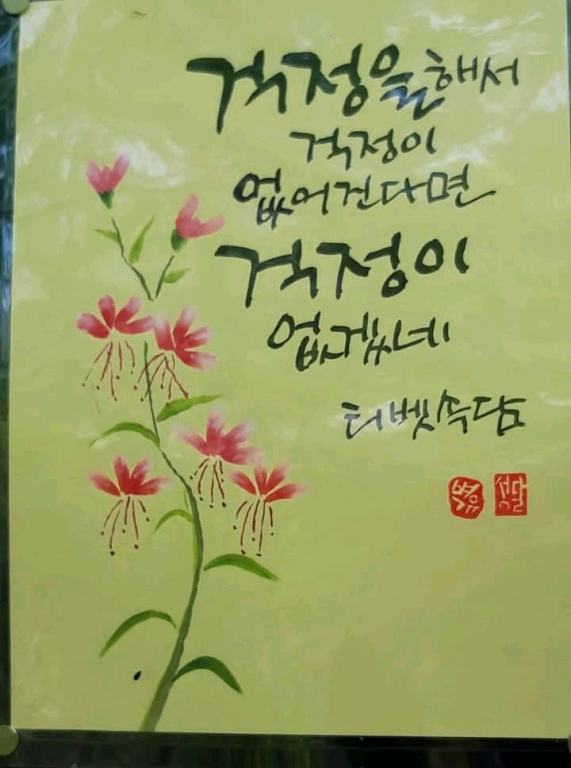 걱정을해서
걱정이
없어진다면
걱정이
없겠네
티벳속담